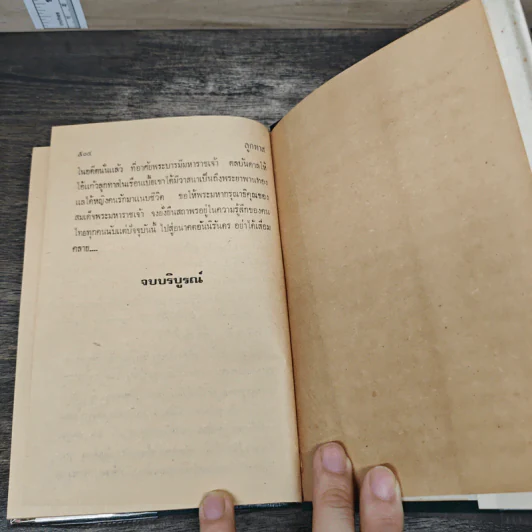 ลูกทาส
ในอดีตนั้นแล้ว ที่อาศัยพระบารมีมหาราชเจ้า ดลบันดาลให้
ได้แก้วลูกทาสในเรือนเบี้ยเขาได้มีวาสนาเป็นถึงพระยาพานทอง
และได้หญิงคนรักมาแนบชีวิต ขอให้พระมหากรุณาธิคุณของ
สมเด็จพระมหาราชเจ้า จงยั่งยืนสถาพรอยู่ในความรู้สึกของคน
ไทยทุกคนนับแต่ปัจจุบันนี้ ไปสู่อนาคตอันนิรันดร อย่าได้เสื่อม
คลาย....
จบบริบูรณ์